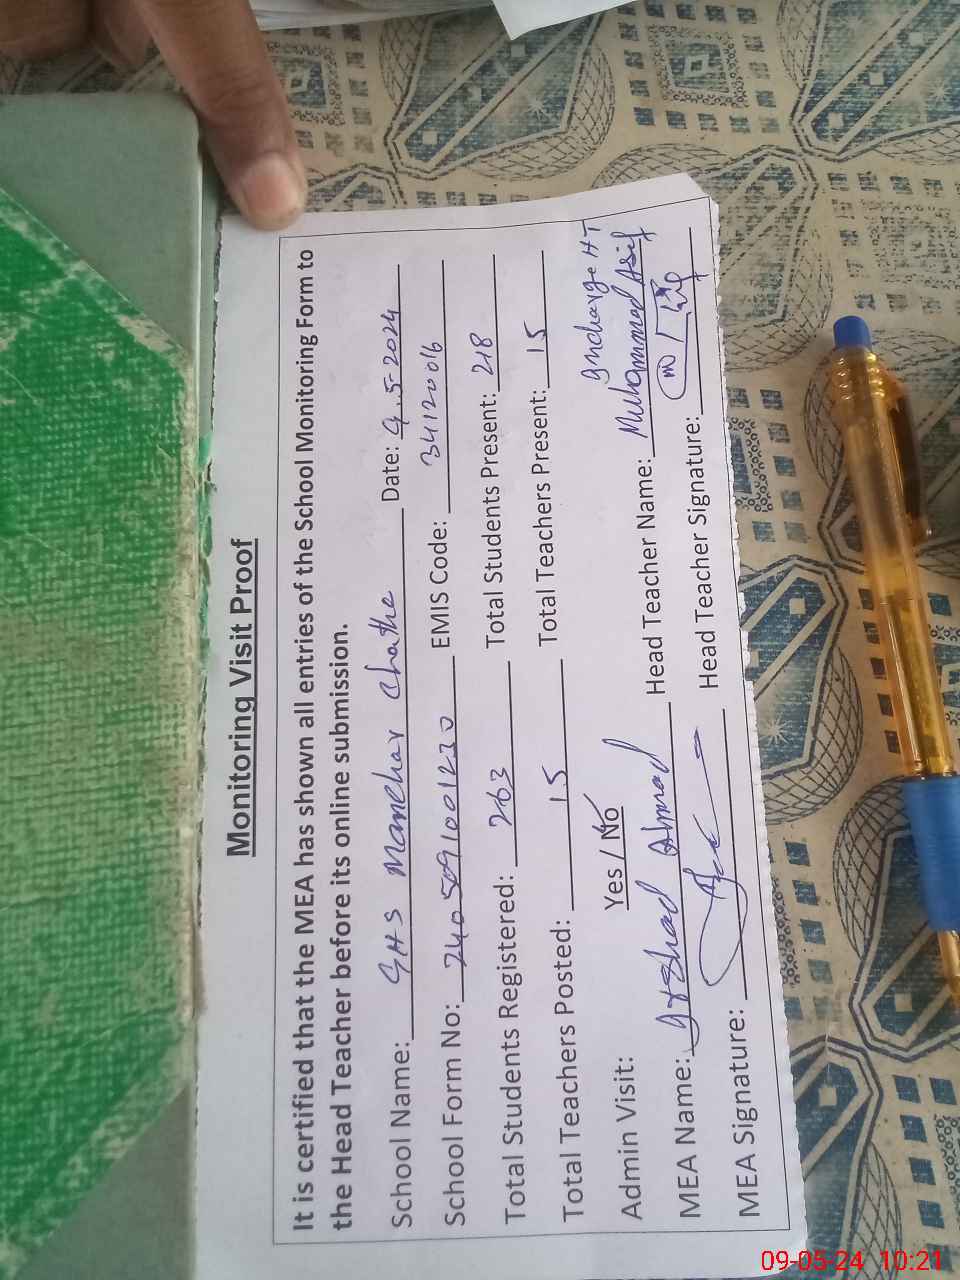 Monitoring Visit Proof
It is certified that the MEA has shown all entries of the School Monitoring Form to
the Head Teacher before its online submission.
School Name: GHS Manchar Chatha Date: 9.5-2024
School Form No: 2405091001230 EMIS Code: 34120016
Total Students Registered: 263 Total Students Present: 218
Total Teachers Posted: 15 Total Teachers Present: 15
Admin Visit: Yes / No
Incharge HT
MEA Name: Irshad Ahmad Head Teacher Name: Muhammad Asif
MEA Signature: Head Teacher Signature:
09-05-24 10:21